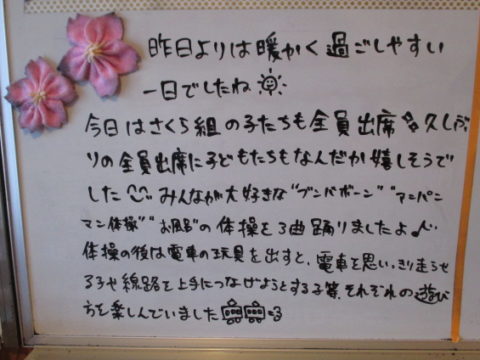 昨日よりは暖かく過ごしやすい
一日でしたね
今日はさくら組の子たちも全員出席 久しぶ
りの全員出席に子どもたちもなんだか嬉しそうで
した みんなが大好きな"ブンバボーン""アンパン
マン体操""お風呂"の体操を3曲踊りましたよ♪
体操の後は電車の玩具を出すと、電車を思いっきり走らせ
る子や線路を上手につなげようとする子等、それぞれの遊び
方を楽しんでいました